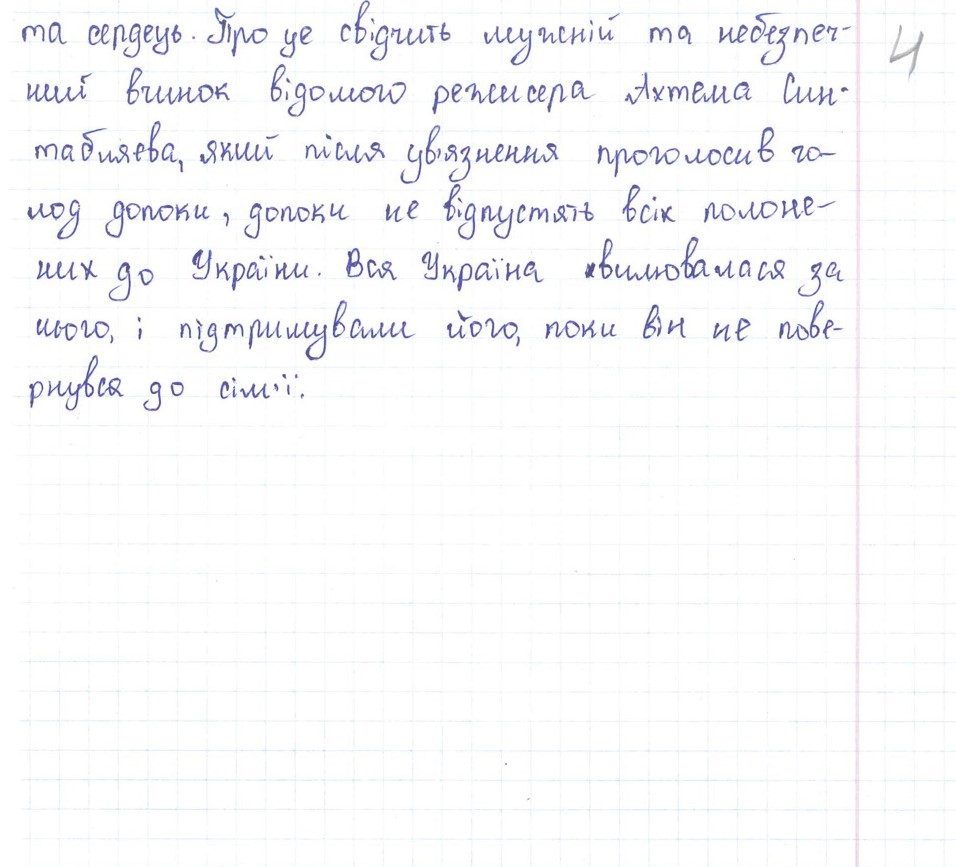 та сердець. Про це свідчить мужній та небезпеч-
ний вчинок відомого режисера Ахтема Син-
табляєва, який після ув'язнення проголосив го-
лод допоки, допоки не відпустять всіх полоне-
них до України. Вся Україна хвилювалася за
нього, і підтримували його, поки він не пове-
рнувся до сім'ї.
4